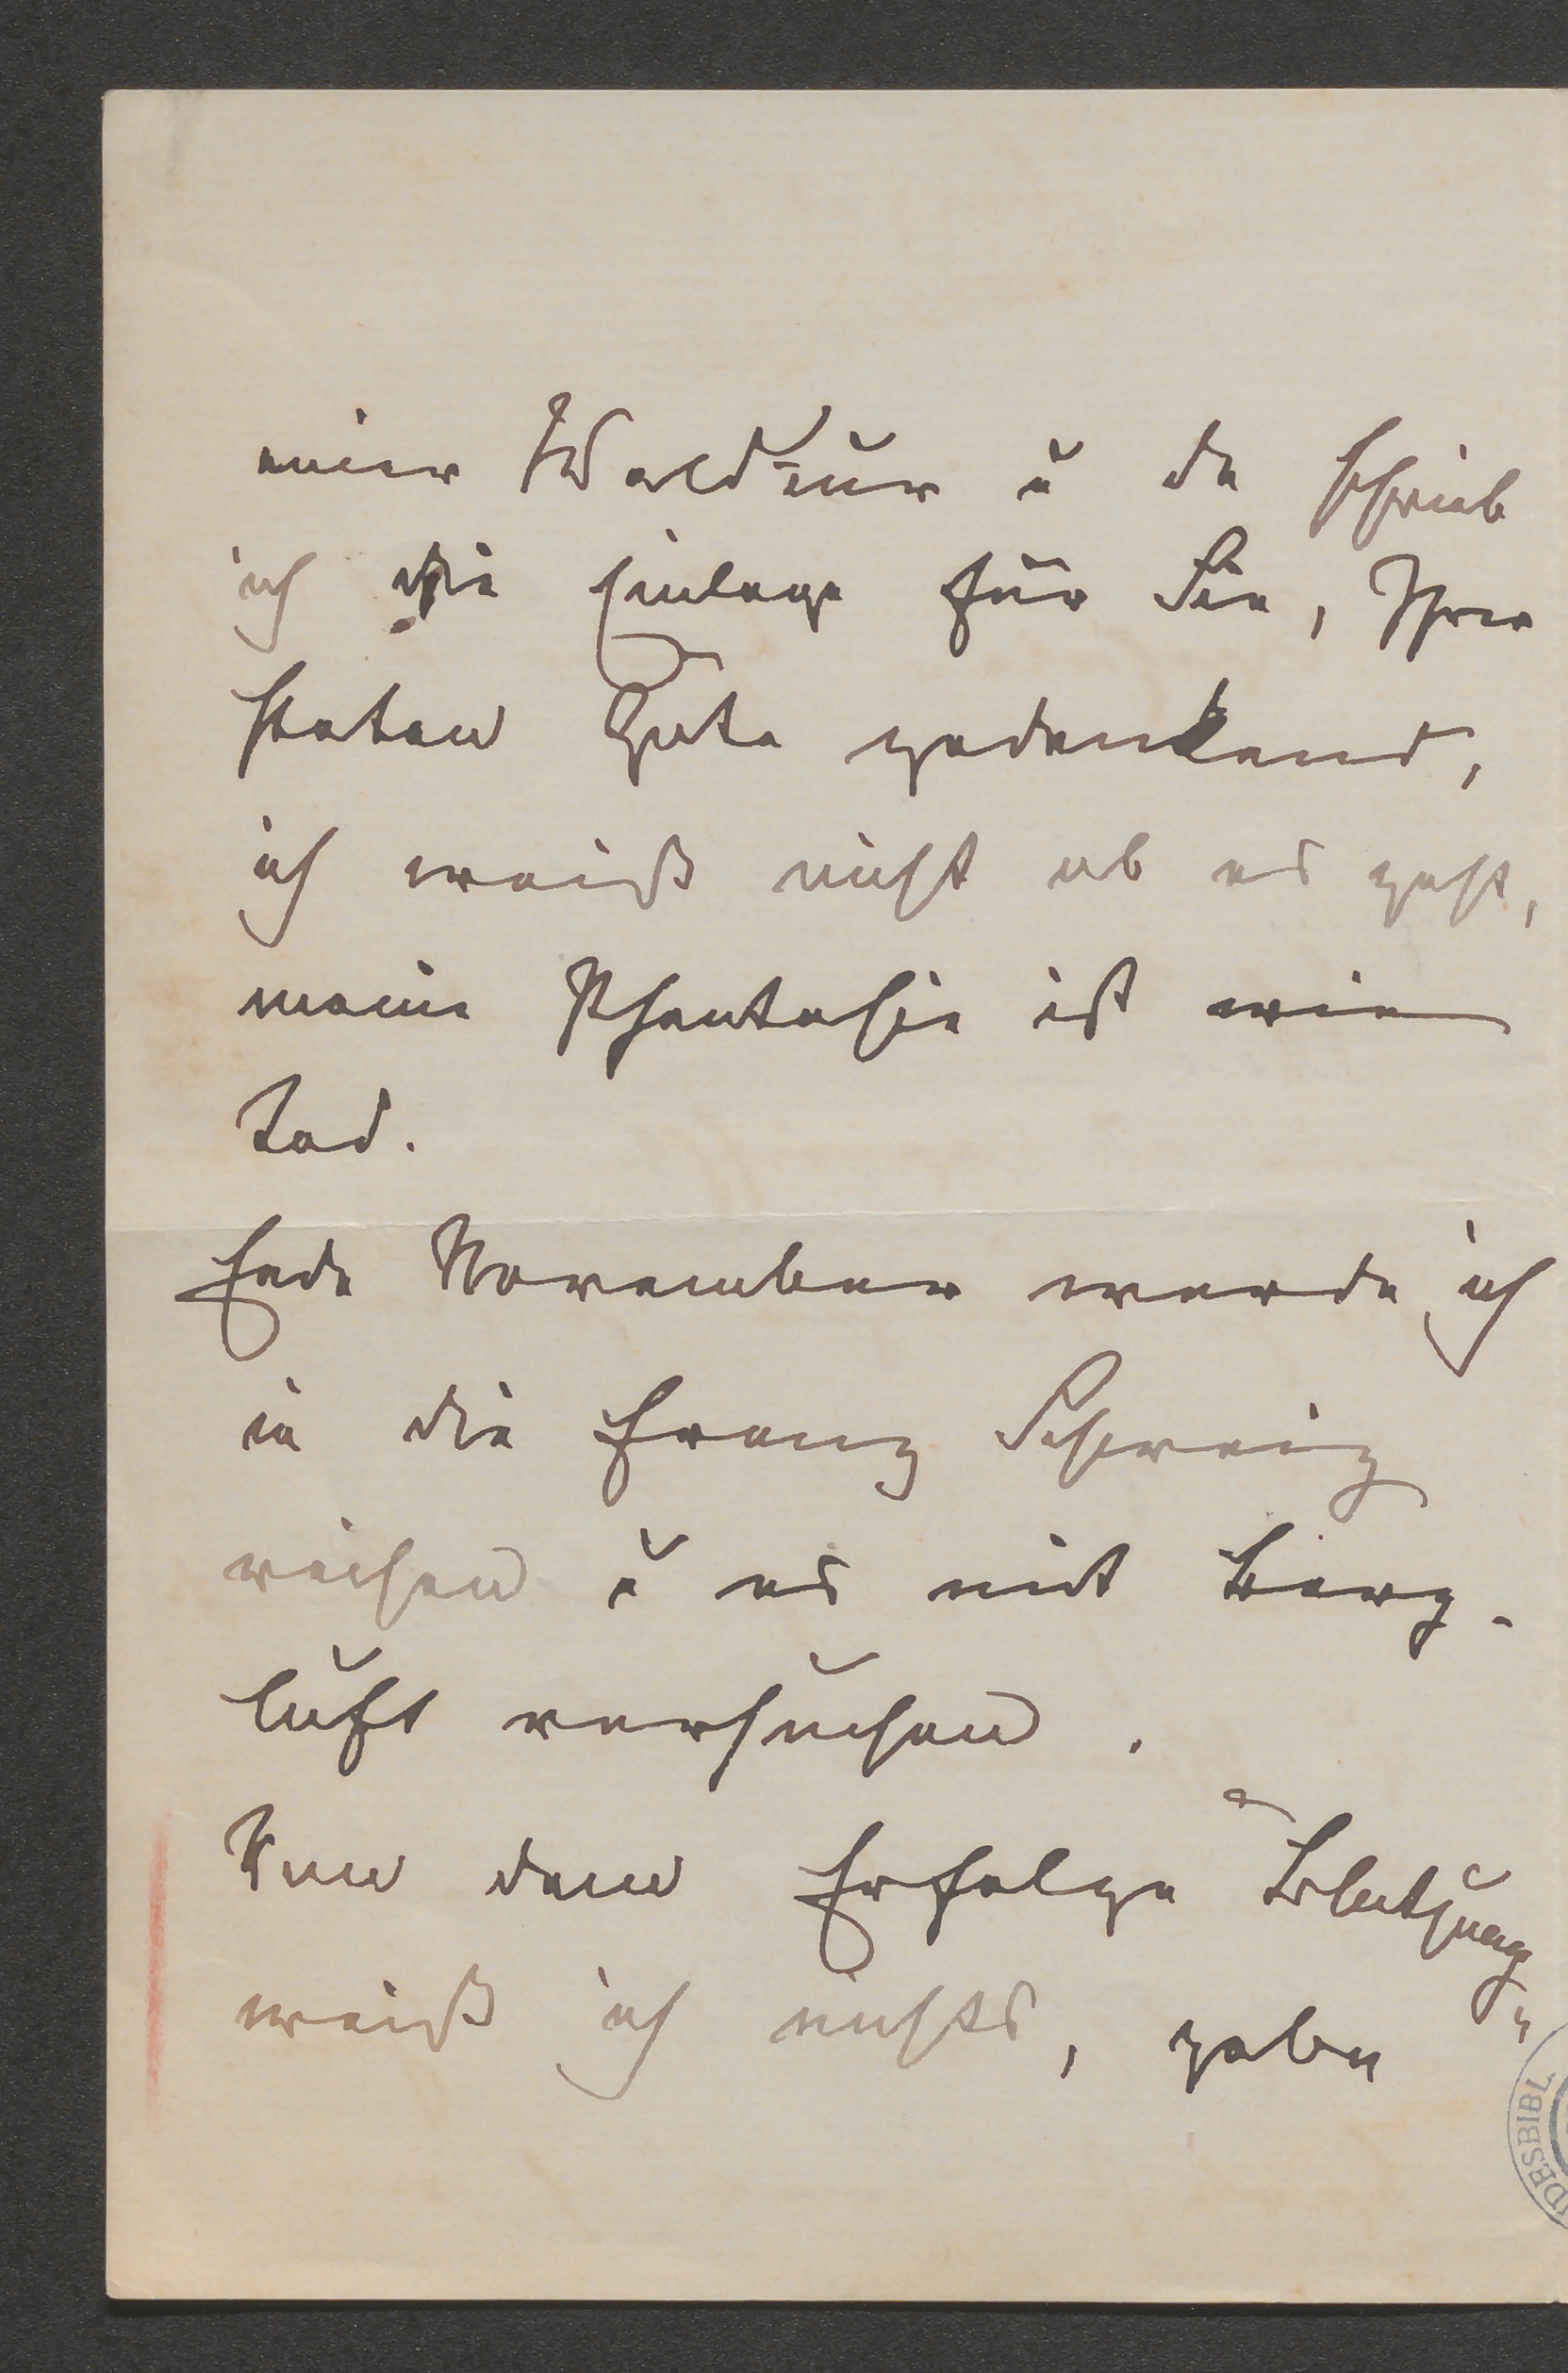 einer Waldkur u da schrieb
ich die Einlage für Sie, Ihrer
steten Güte gedenkend,
ich weiß nicht ob es geht,
meine Phantasie ist wie
tod.
Ende November werde ich
in die franz Schweiz
reisen u es mit Berg-
luft versuchen.
Von dem Erfolge
weiß ich nichts, gebe
DESBIBL